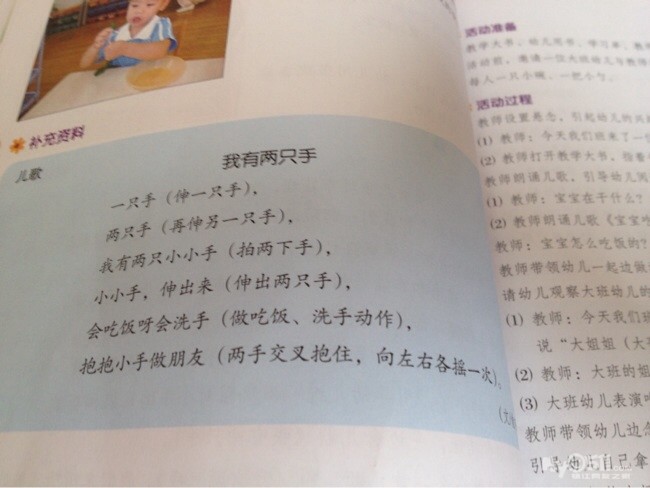 补充资料
儿歌
我有两只手
一只手（伸一只手），
两只手（再伸另一只手），
我有两只小小手（拍两下手），
小小手，伸出来（伸出两只手），
会吃饭呀会洗手（做吃饭、洗手动作），
抱抱小手做朋友（两手交叉抱住，向左右各摇一次）。
活动准备
教学大书、幼儿用书、学习单、教
活动前，邀请一位大班幼儿与教师
每人一只小碗、一把小勺。
活动过程
教师设置悬念，引起幼儿的兴
(1) 教师：今天我们班来了一
(2) 教师打开教学大书，指着
教师朗诵儿歌，引导幼儿
(1) 教师：宝宝在干什么？
(2) 教师朗诵儿歌《宝宝吃
教师：宝宝怎么吃饭的？
教师带领幼儿一起边做
请幼儿观察大班幼儿的
(1) 教师：今天我们班
说“大姐姐（大
(2) 教师：大班的姐
(3) 大班幼儿表演
教师带领幼儿边念
引导幼儿自己拿